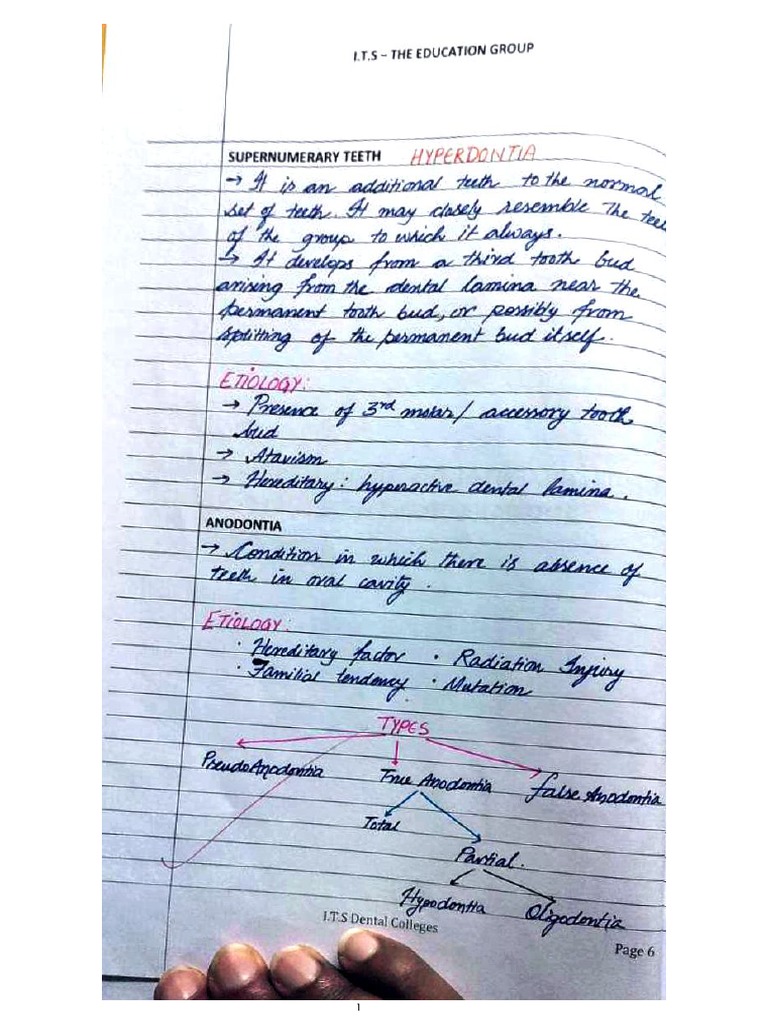 I.T.S – THE EDUCATION GROUP
SUPERNUMERARY TEETH HYPERDONTIA
→ It is an additional teeth to the normal
set of teeth. It may closely resemble The tee
of the group to which it always.
→ It develops from a third tooth bud
arising from the dental lamina near the
permanent tooth bud, or possibly from
splitting of the permanent bud itself.
ETIOLOGY:
→ Presence of 3rd molar/ accessory tooth
bud
→ Atavism
→ Hereditary: hyperactive dental lamina.
ANODONTIA
→ Condition in which there is absence of
teeth in oral cavity.
ETIOLOGY:
· Hereditary factor · Radiation Injury
· Familial tendency · Mutation
TYPES
PseudoAnodontia True Anodontia false Anodontia
Total
Partial.
Hypodontia Oligodontia
I.T.S Dental Colleges
Page 6
1